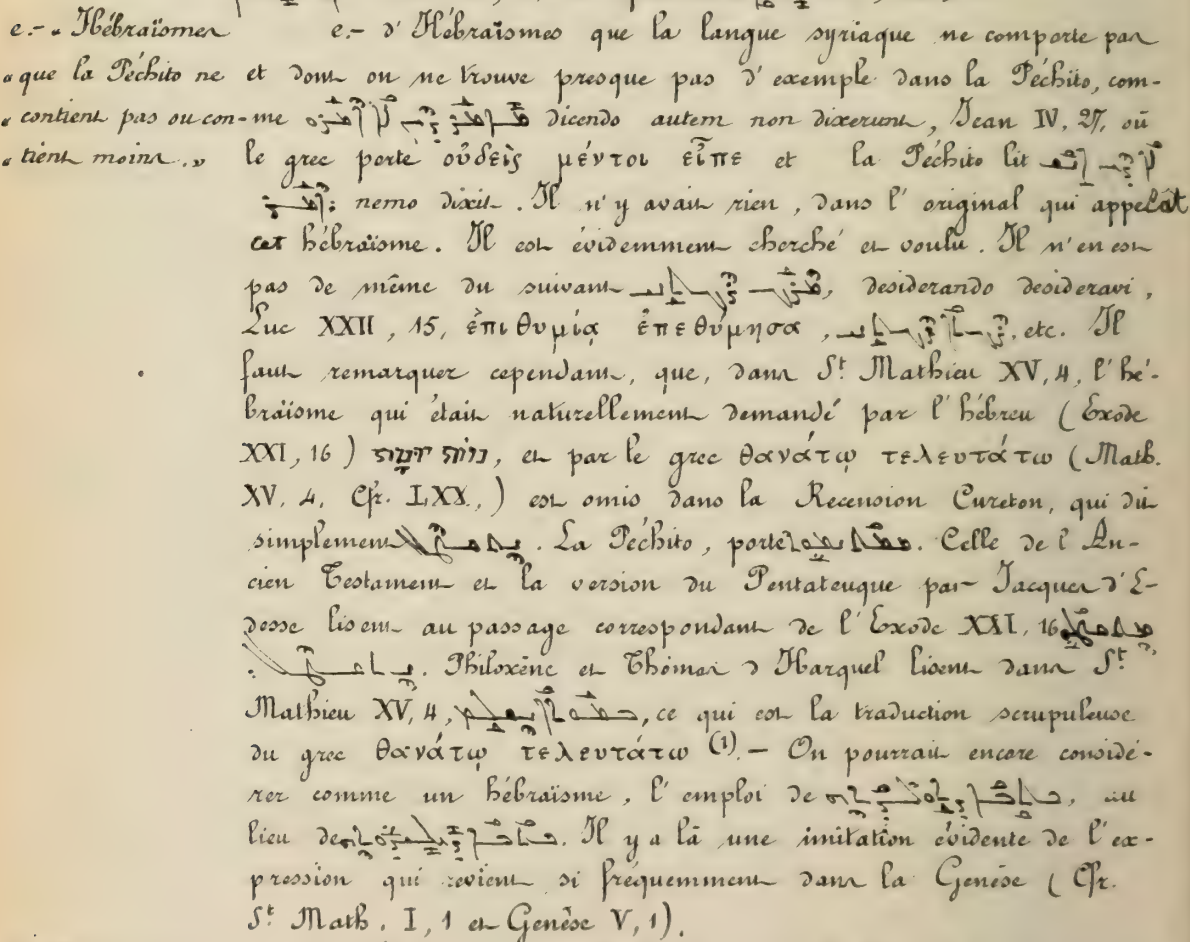 e.- « Hébraïsmes
« que la Péchito ne
« contient pas ou con-
« tient moins. »
e.- d'Hébraïsmes que la langue syriaque ne comporte pas
et dont on ne trouve presque pas d'exemple dans la Péchito, com-
me dicendo autem non dixerunt, Jean IV, 27, où
le grec porte οὐδεὶς μέντοι εἶπε et la Péchito lit
nemo dixit. Il n'y avait rien, dans l'original qui appelât
cet hébraïsme. Il est évidemment cherché et voulu. Il n'en est
pas de même du suivant , desiderando desideravi,
Luc XXII, 15, ἐπιθυμίᾳ ἐπεθύμησα , etc. Il
faut remarquer cependant, que, dans St. Mathieu XV, 4, l'hé-
braïsme qui était naturellement demandé par l'hébreu (Exode
XXI, 16) , et par le grec θανάτῳ τελευτάτω (Math.
XV, 4, Cfr. LXX,) est omis dans la Recension Cureton, qui dit
simplement . La Péchito, porte . Celle de l'An-
cien Testament et la version du Pentateuque par Jacques d'É-
desse lisent au passage correspondant de l'Exode XXI, 16
. Philoxène et Thomas d'Harquel lisent dans St.
Mathieu XV, 4, , ce qui est la traduction scrupuleuse
du grec θανάτῳ τελευτάτω (1). — On pourrait encore considé-
rer comme un hébraïsme, l'emploi de , au
lieu de . Il y a là une imitation évidente de l'ex-
pression qui revient si fréquemment dans la Genèse (Cfr.
St. Math. I, 1 et Genèse V, 1).